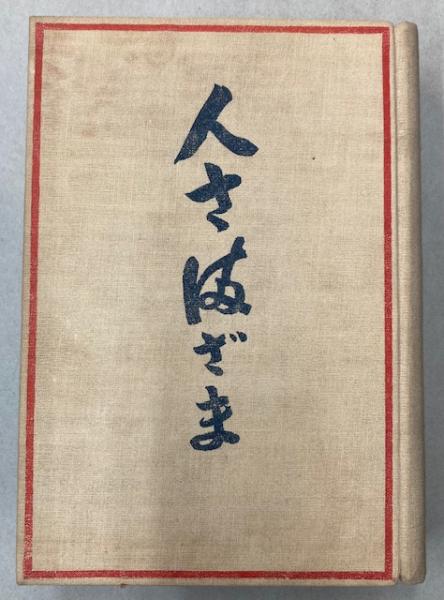 人さ満ざま